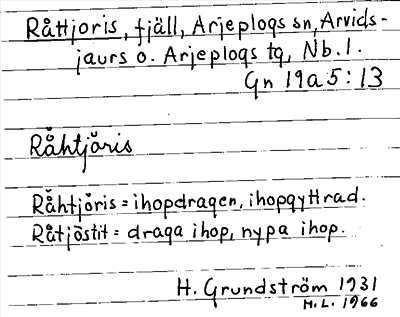 Råttjoris, fjäll, Arjeplogs sn, Arvids-
jaurs o. Arjeplogs tg, Nb. l.
Gn 19a5:13
Råhtjŏris
Råhtjŏris = ihopdragen, ihopgyttrad.
Råtjŏstit = draga ihop, nypa ihop.
H. Grundström 1931
M.L. 1966